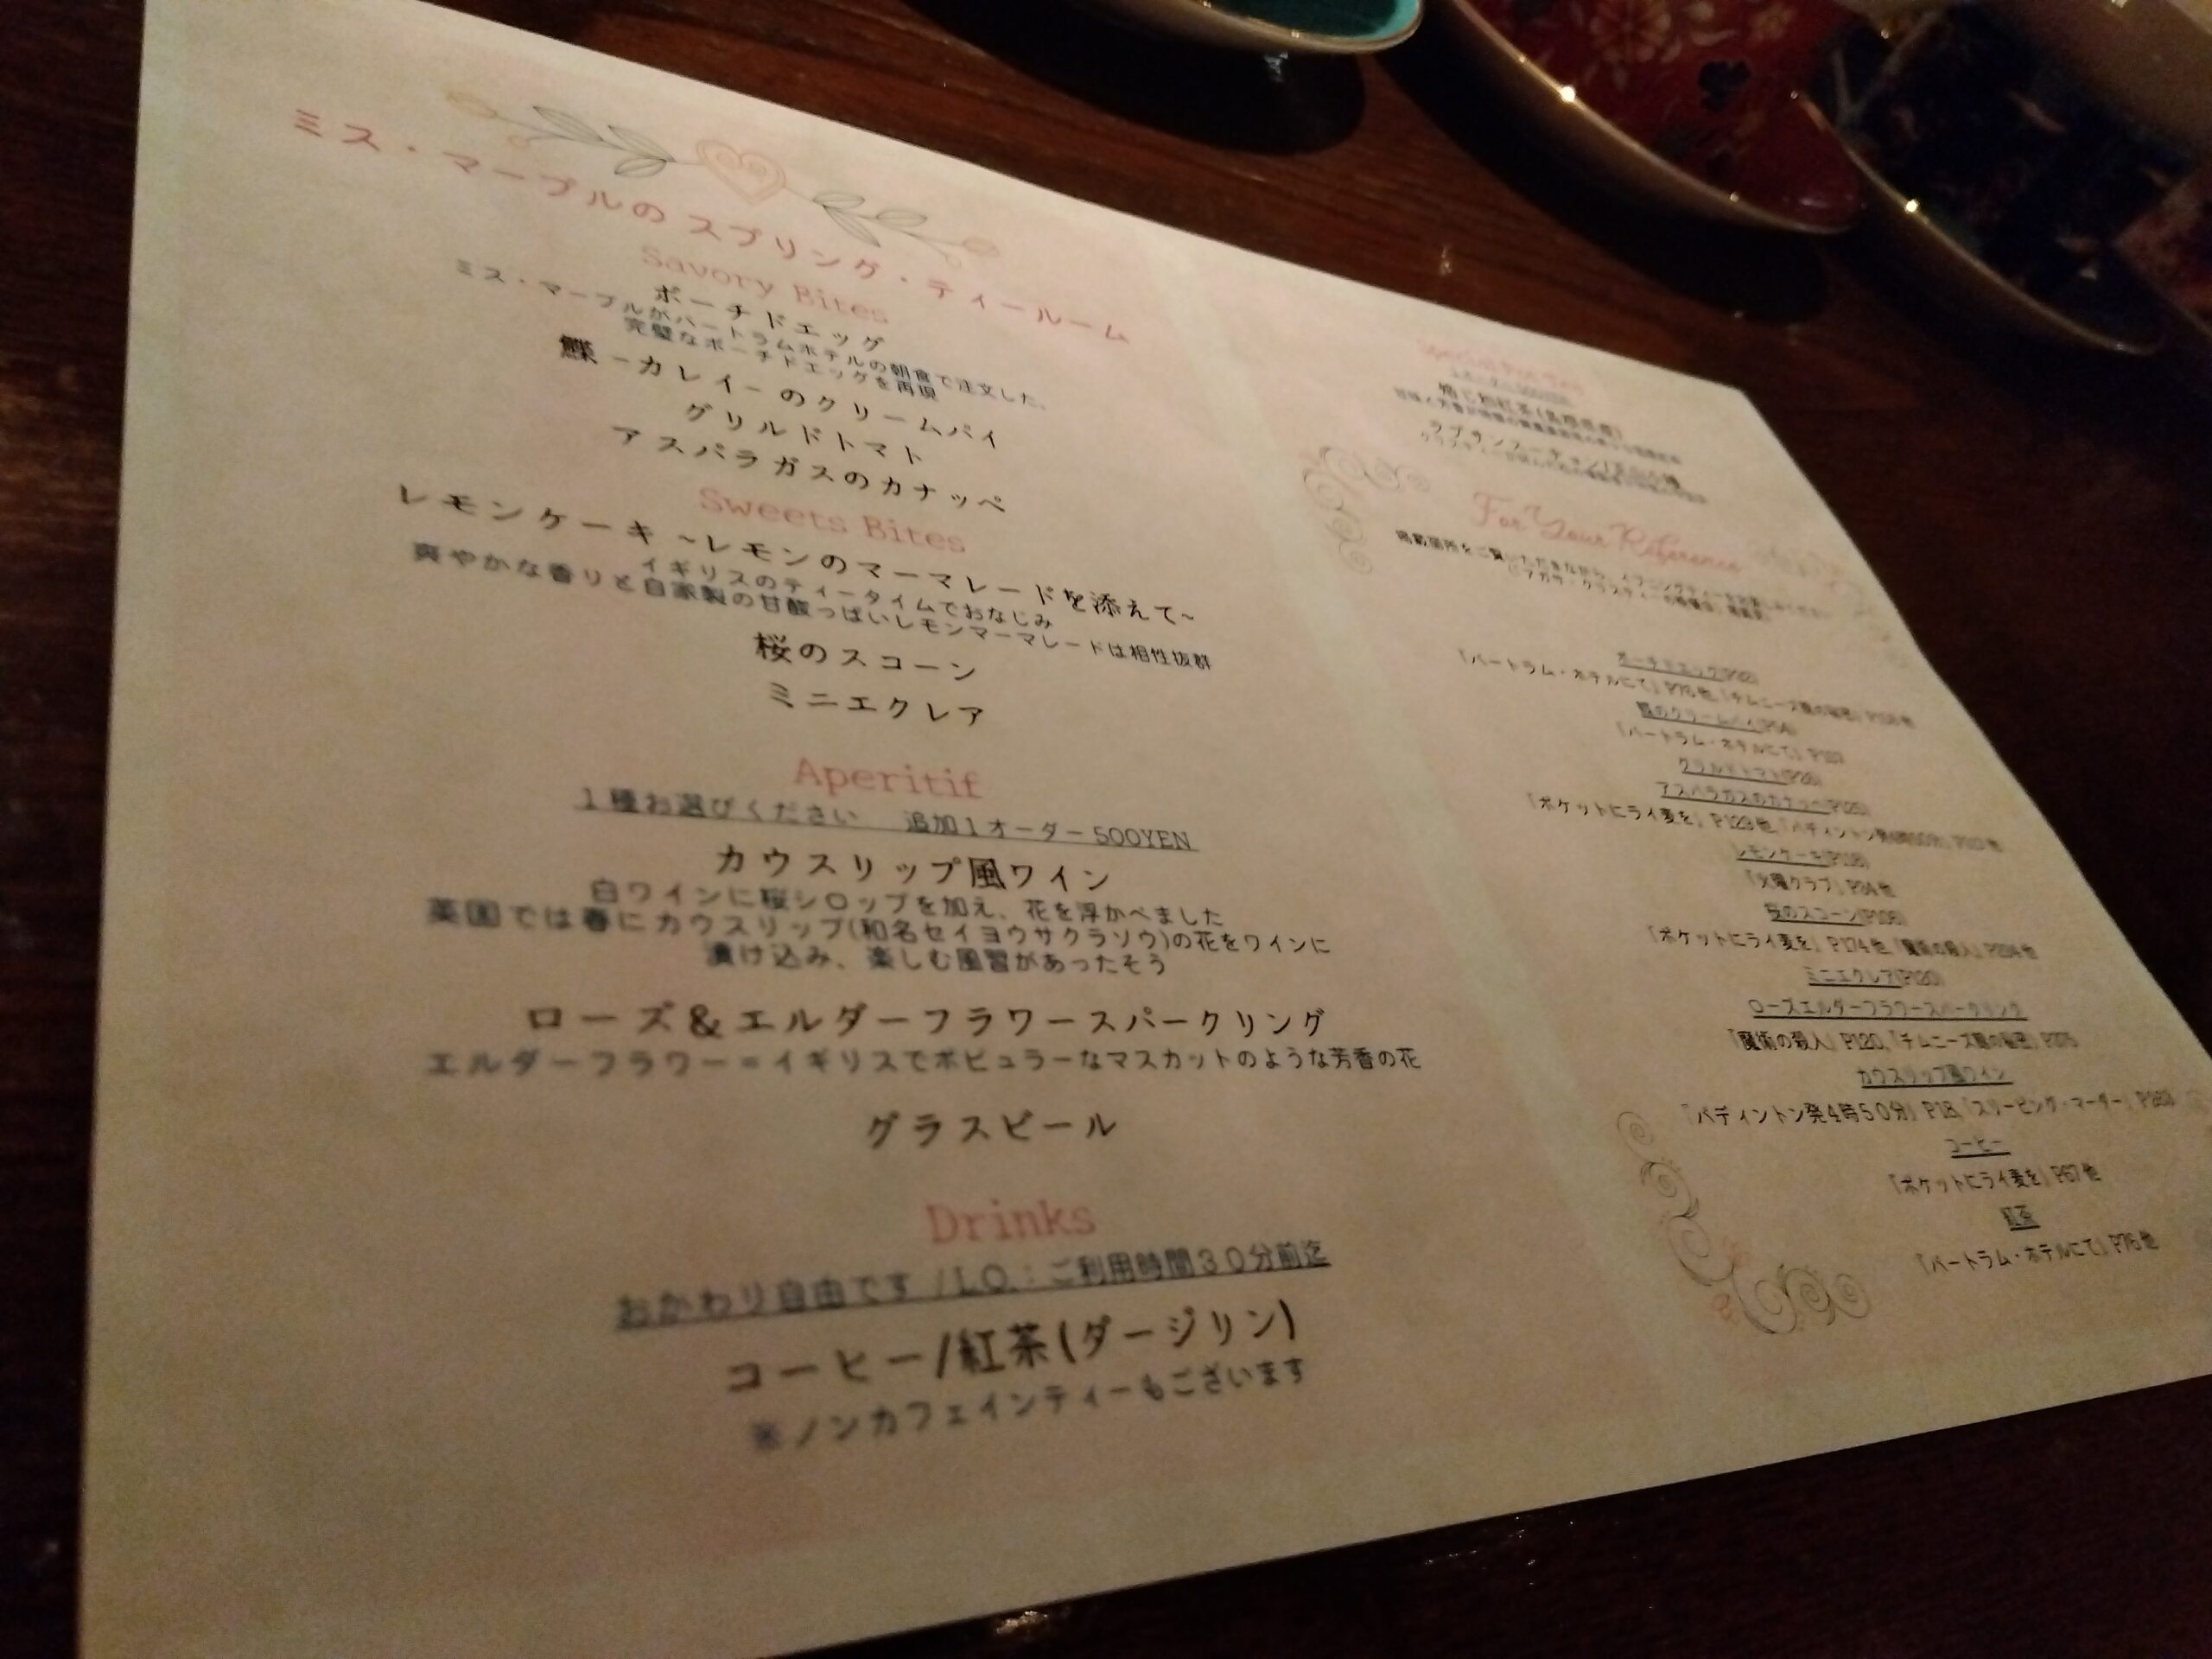 ミス・マープルの スプリング・ティールーム
Savory Bites
ポーチドエッグ
ミス・マープルがバートラムホテルの朝食で注文した、
完璧なポーチドエッグを再現
鰈 -カレイ- のクリームパイ
グリルドトマト
アスパラガスのカナッペ
Sweets Bites
レモンケーキ ~レモンのマーマレードを添えて~
イギリスのティータイムでおなじみ
爽やかな香りと自家製の甘酸っぱいレモンマーマレードは相性抜群
桜のスコーン
ミニエクレア
Aperitif
1種お選びください 追加1オーダー 500YEN
カウスリップ風ワイン
白ワインに桜シロップを加え、花を浮かべました
英国では春にカウスリップ(和名セイヨウサクラソウ)の花をワインに
漬け込み、楽しむ風習があったそう
ローズ&エルダーフラワースパークリング
エルダーフラワー=イギリスでポピュラーなマスカットのような芳香の花
グラスビール
Drinks
おかわり自由です /L.O.:ご利用時間30分前迄
コーヒー/紅茶(ダージリン)
※ノンカフェインティーもございます
For Your Reference
ポーチドエッグ
『バートラム・ホテルにて』P75他、『チムニーズ館の秘密』
鰈のクリームパイ
『バートラム・ホテルにて』
グリルドトマト
アスパラガスのカナッペ
『ポケットにライ麦を』P129他、『パディントン発4時50分』
レモンケーキ
『火曜クラブ』P34他
桜のスコーン
『ポケットにライ麦を』P174他、『魔術の殺人』
ミニエクレア(P120)
ローズエルダーフラワースパークリング
『魔術の殺人』P120、『チムニーズ館の秘密』
カウスリップ風ワイン
『パディントン発4時50分』P18、『スリーピング・マーダー』
コーヒー
『ポケットにライ麦を』P67他
紅茶
『バートラム・ホテルにて』P75他